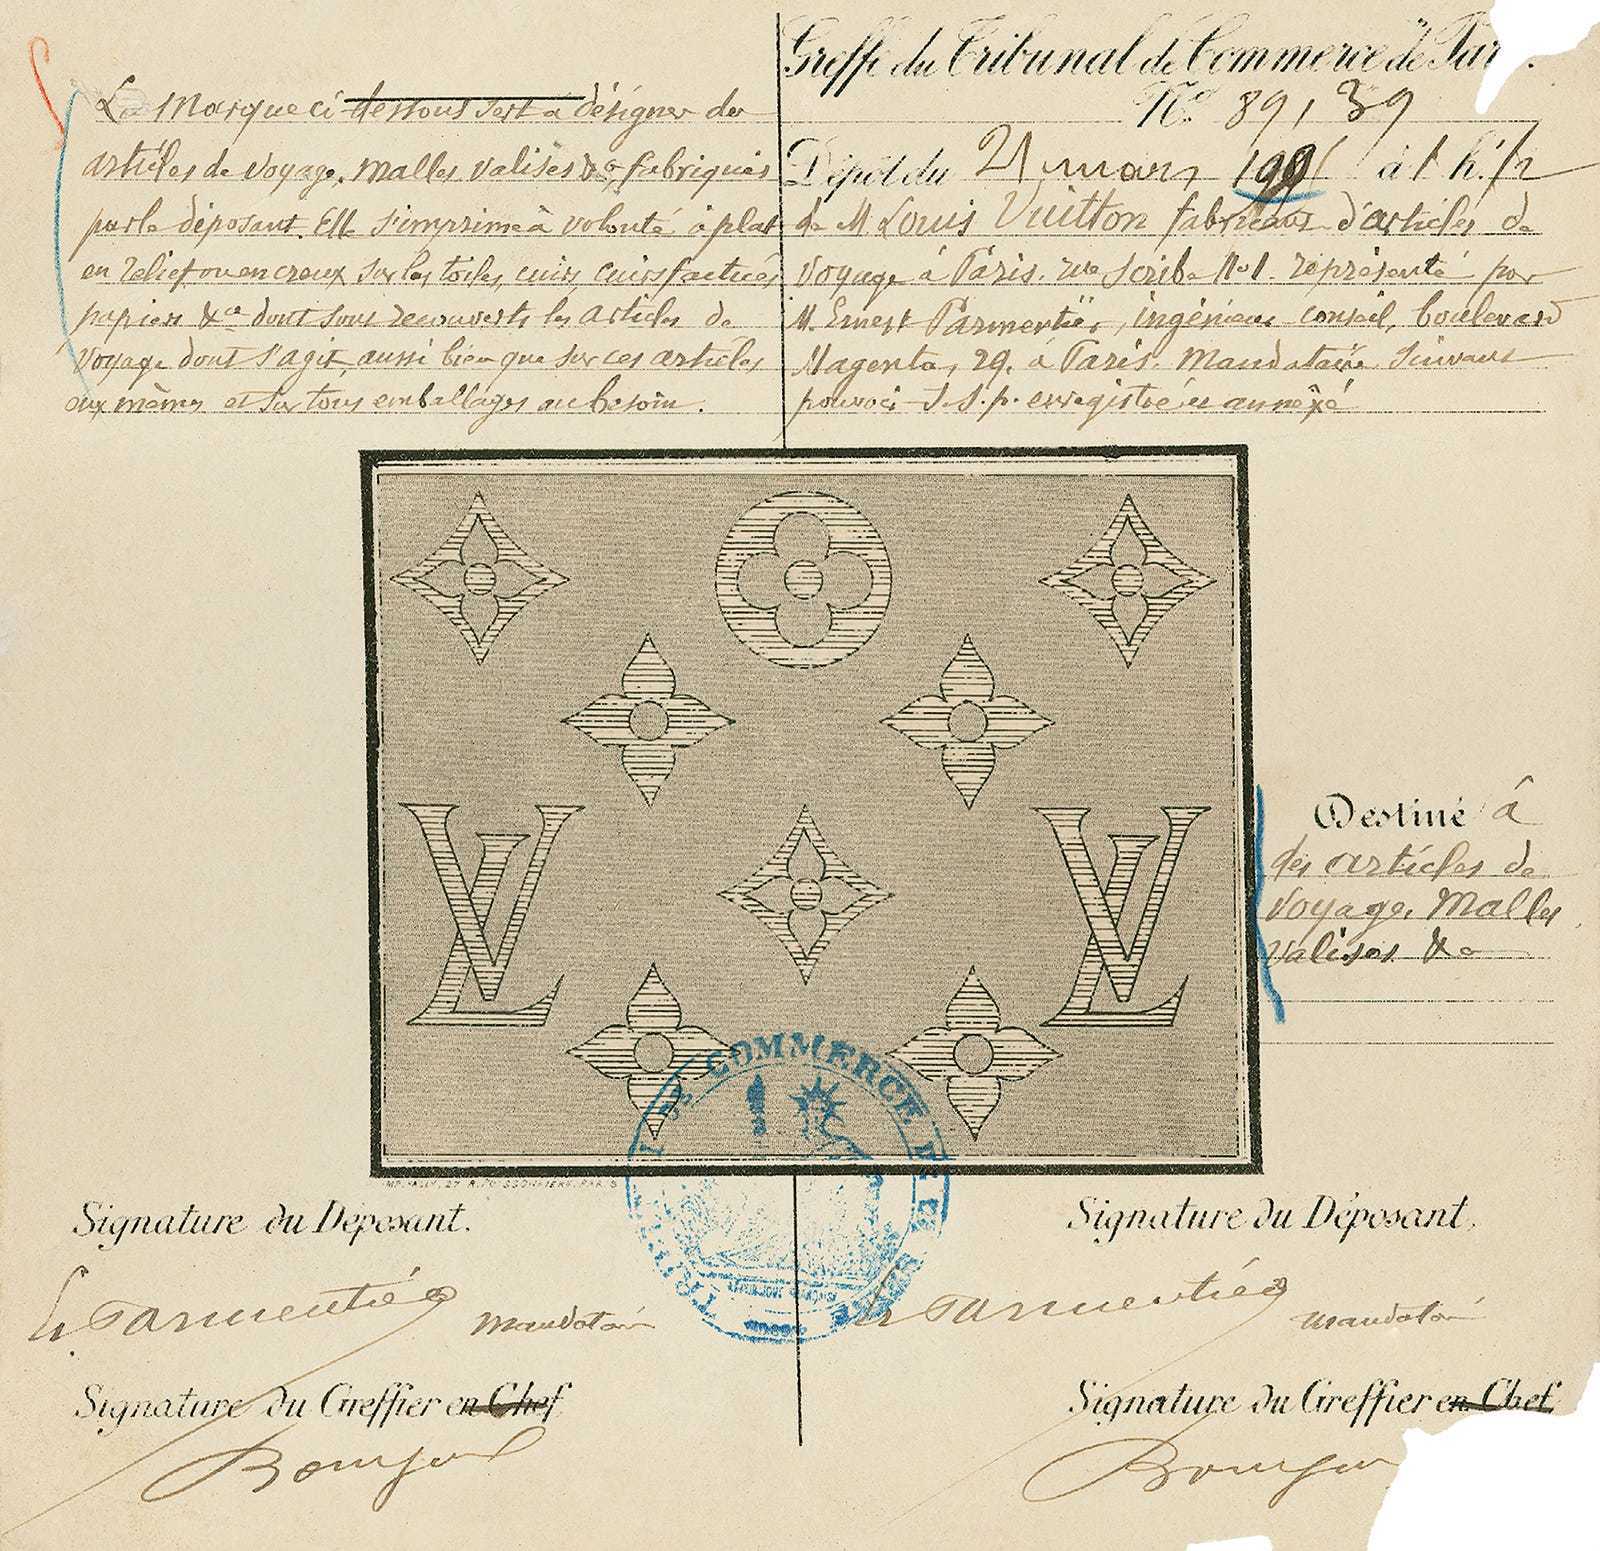 La Marque ci-dessous sert à désigner des
articles de Voyage, Malles Valises &a, fabriqués
par le déposant. Elle s'imprime à volonté à plat
en relief ou en creux sur les toiles, cuirs, cuirs factices,
papiers &ce dont sont recouverts les articles de
Voyage dont s'agit, aussi bien que sur ces articles
eux mêmes et sur tous emballages au besoin.
Greffe du Tribunal de Commerce de Par
No. 89,139
Dépôt du 21 mars à 1 h. 1/2
de M Louis Vuitton fabricant d'articles de
Voyage à Paris. rue Scribe No 1. représenté par
M. Ernest Parmentier, ingénieur conseil, boulevard
Magenta, 29. à Paris. Mandataire suivant
pouvoir s.s.p. enregistré et annexé
LV
LV
Destiné à
des articles de
Voyage, Malles
Valises &a
TRIBUNAL DE COMMERCE DE LA SEINE
Signature du Déposant.
E. Parmentier mandataire
Signature du Greffier en Chef
Signature du Déposant.
E. Parmentier mandataire
Signature du Greffier en Chef